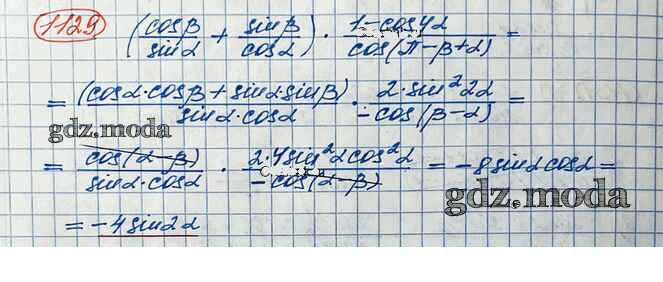 1129 (cosβ/sinα + sinβ/cosα) · 1-cos4α/cos(π-β+α) =
= (cosα·cosβ + sinα·sinβ)/sinα·cosα · 2·sin²2α/-cos(β-α) =
gdz.moda
= cos(α-β)/sinα·cosα · 2·4sin²αcos²α/-cos(α-β) = -8sinαcosα =
gdz.moda
= -4sin2α